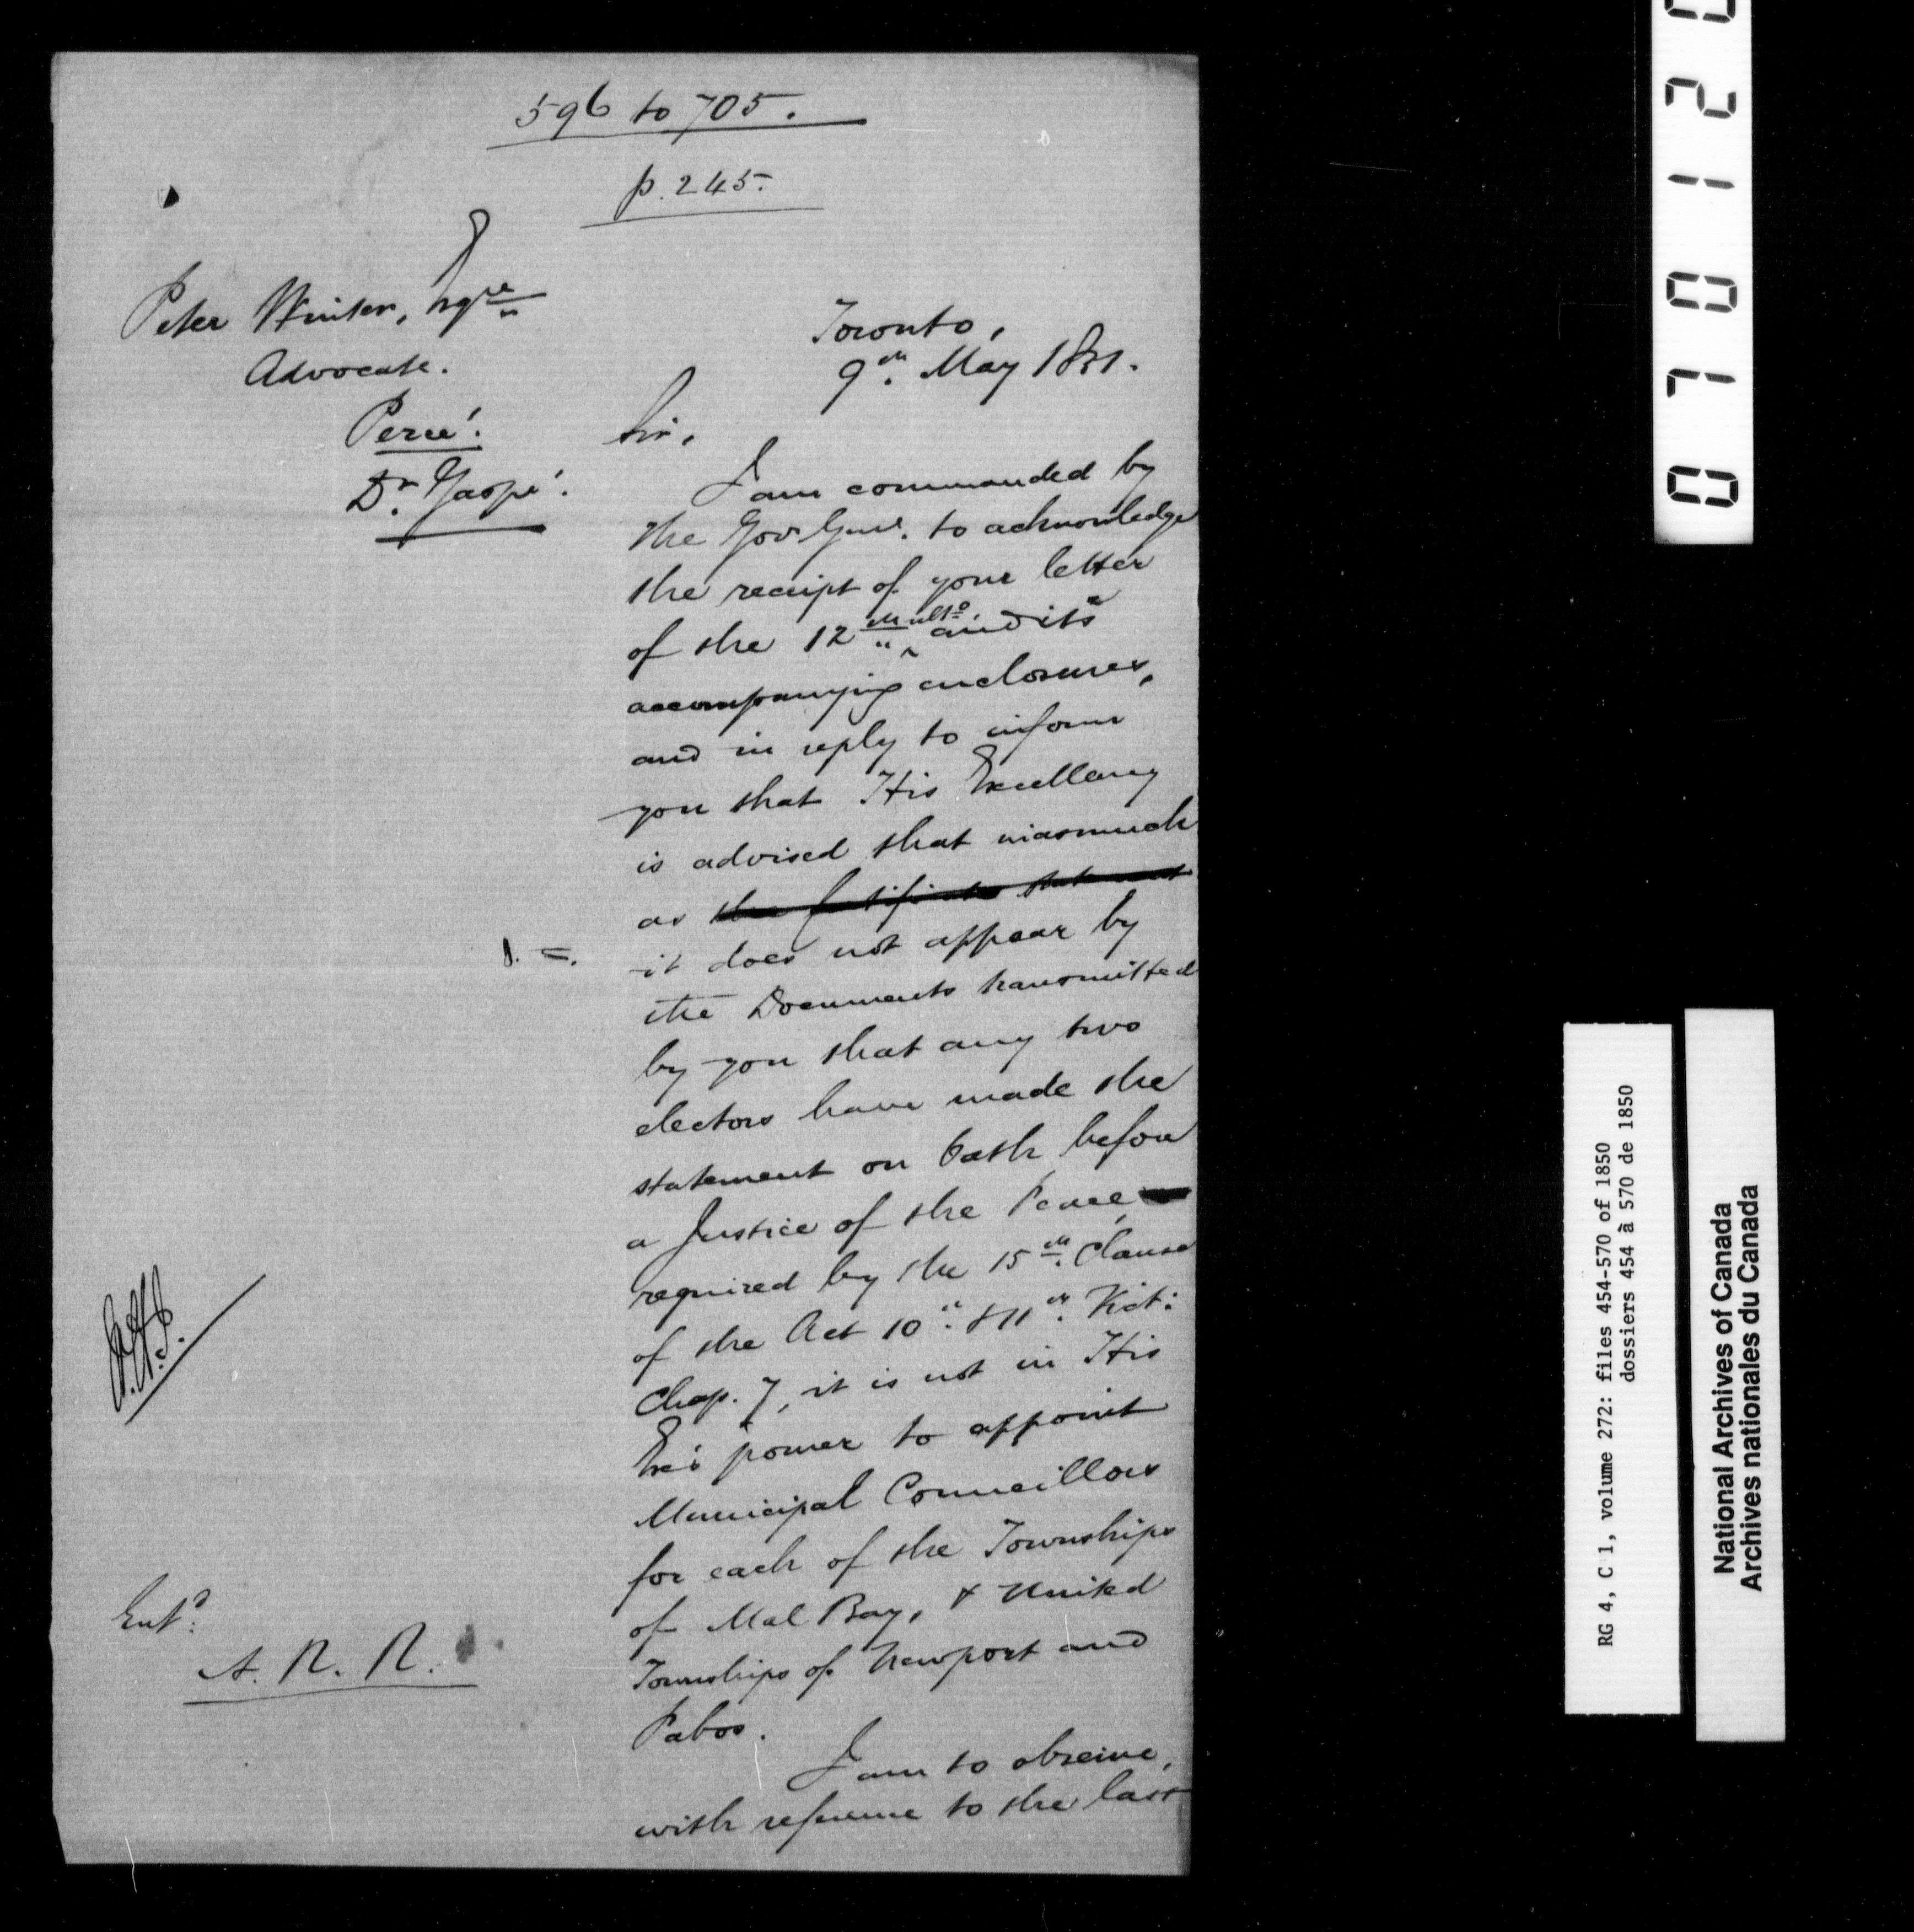 596 to 705.
p. 245.
Peter Winter, Esqre
Advocate.
Percé.
Dt. Gaspé.
Toronto,
9th. May 1851.
Sir,
I am commanded by
the Gov Genl. to acknowledge
the receipt of your letter
of the 12th ulto. and its
accompanying enclosures,
and in reply to inform
you that His Excellency
is advised that inasmuch
as the Certificate statement
it does not appear by
the Documents transmitted
by you that any two
electors have made the
statement on Oath before
a Justice of the Peace,
required by the 15th. Clause
of the Act 10th. & 11th. Vict:
Chap. 7, it is not in His
Ex's power to appoint
Municipal Councillors
for each of the Townships
of Mal Bay, & United
Townships of Newport and
Pabos.
I am to observe,
with reference to the last
Entd.
A. R. R.
0701207
RG 4, C 1, volume 272: files 454-570 of 1850
dossiers 454 à 570 de 1850
National Archives of Canada
Archives nationales du Canada